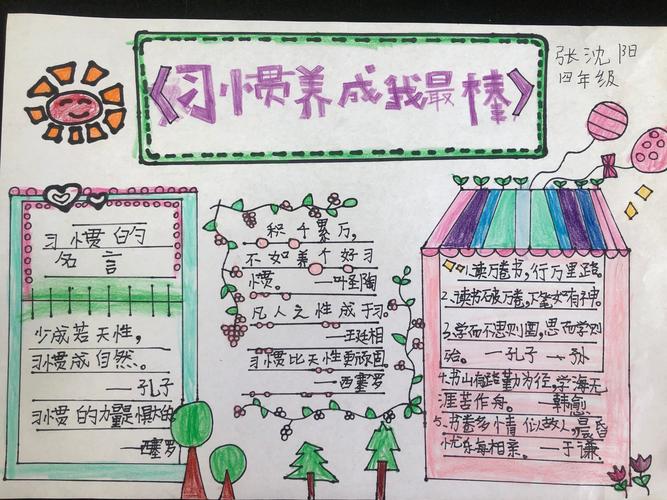 《习惯养成我最棒》
张沈阳
四年级
习惯的
名言
少成若天性,
习惯成自然。
——孔子
习惯的力量是惧大的
——西塞罗
积千累万,
不如养个好习
惯。——叶圣陶
凡人之性成于习。
——王廷相
习惯比天性更顽固。
——西塞罗
1.读万卷书,行万里路。
2.读书破万卷,下笔如有神。
3.学而不思则罔,思而不学则
殆。——孔子
4.书山有路勤为径,学海无
涯苦作舟。——韩愈
5、书卷多情似故人,晨昏
忧乐每相亲。——于谦